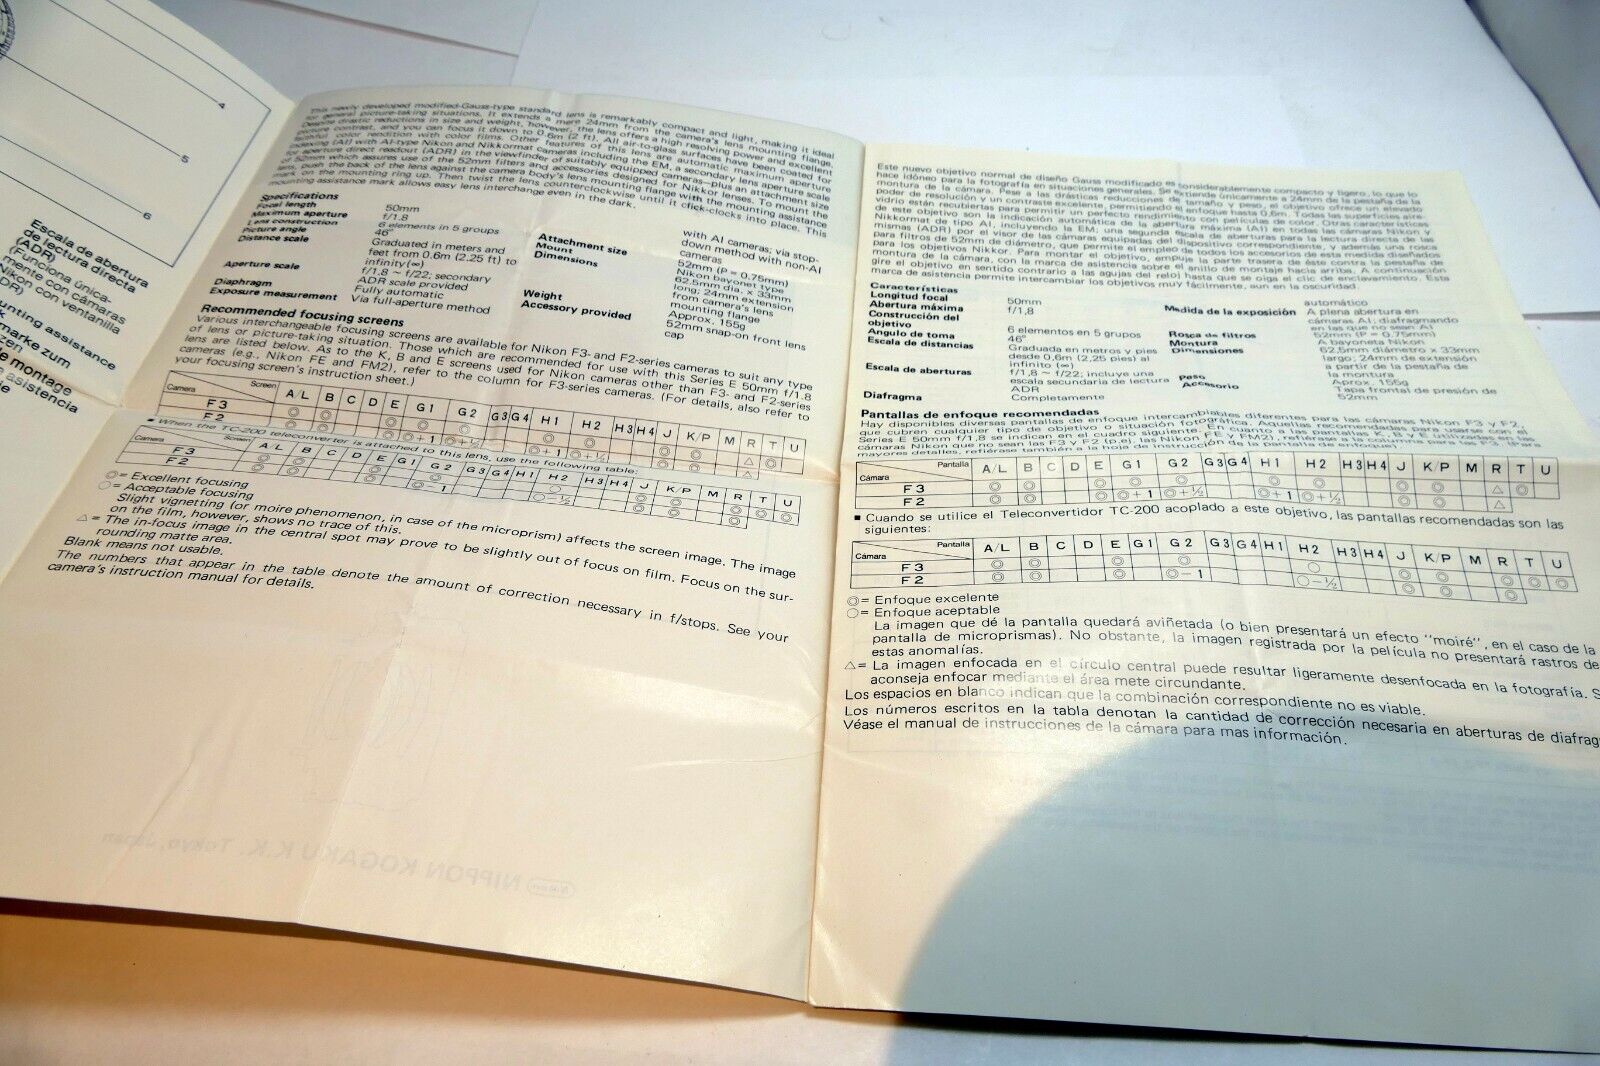 4
5
6
Escala de abertura
de lectura directa
(ADR)
(Funciona única-
mente con cámaras
Nikon con ventanilla
ADR)
unting assistance
marke zum
zen
e montage
asistencia
This newly developed modified-Gauss-type standard lens is remarkably compact and light, making it ideal
for general picture-taking situations. It extends a mere 24mm from the camera's lens mounting flange.
Despite drastic reductions in size and weight, however, the lens offers a high resolving power and excellent
picture contrast, and you can focus it down to 0.6m (2 ft). All air-to-glass surfaces have been coated for
faithful color rendition with color films. Other features of this lens are automatic maximum aperture
indexing (AI) with AI-type Nikon and Nikkormat cameras including the EM, a secondary lens aperture scale
for aperture direct readout (ADR) in the viewfinder of suitably equipped cameras—plus an attachment size
of 52mm which assures use of the 52mm filters and accessories designed for Nikkor lenses. To mount the
lens, push the back of the lens against the camera body's lens mounting flange with the mounting assistance
mark on the mounting ring up. Then twist the lens counterclockwise until it click-clocks into place. This
mounting assistance mark allows easy lens interchange even in the dark.
Specifications
Focal length 50mm
Maximum aperture f/1.8
Lens construction 6 elements in 5 groups
Picture angle 46°
Distance scale Graduated in meters and
feet from 0.6m (2.25 ft) to
infinity (∞)
Aperture scale f/1.8 ~ f/22; secondary
ADR scale provided
Diaphragm Fully automatic
Exposure measurement Via full-aperture method
with AI cameras; via stop-
down method with non-AI
cameras
Attachment size 52mm (P = 0.75mm)
Mount Nikon bayonet type
Dimensions 62.5mm dia. x 33mm
long; 24mm extension
from camera's lens
mounting flange
Weight Approx. 155g
Accessory provided 52mm snap-on front lens
cap
Recommended focusing screens
Various interchangeable focusing screens are available for Nikon F3- and F2-series cameras to suit any type
of lens or picture-taking situation. Those which are recommended for use with this Series E 50mm f/1.8
lens are listed below. As to the K, B and E screens used for Nikon cameras other than F3- and F2-series
cameras (e.g., Nikon FE and FM2), refer to the column for F3-series cameras. (For details, also refer to
your focusing screen's instruction sheet.)
Camera Screen A/L B C D E G1 G2 G3 G4 H1 H2 H3 H4 J K/P M R T U
F3 ◎ ◎ ◎ ◎ ◎ ◎ ◎ ◎ ◎ △ ◎
F2 ◎ ◎ ◎ ◎+1 ◎+½ ◎+1 ◎+½ ◎ ◎ △
▪ When the TC-200 teleconverter is attached to this lens, use the following table:
Camera Screen A/L B C D E G1 G2 G3 G4 H1 H2 H3 H4 J K/P M R T U
F3 ◎ ◎ ◎ ◎ ○ ◎ ◎ ◎ ◎ ◎
F2 ◎ ◎ ◎ ◎−1 ○−½ ◎ ◎ ◎
◎= Excellent focusing
○= Acceptable focusing
Slight vignetting (or moire phenomenon, in case of the microprism) affects the screen image. The image
on the film, however, shows no trace of this.
△= The in-focus image in the central spot may prove to be slightly out of focus on film. Focus on the sur-
rounding matte area.
Blank means not usable.
The numbers that appear in the table denote the amount of correction necessary in f/stops. See your
camera's instruction manual for details.
NIPPON KOGAKU K.K. Tokyo, Japan
Este nuevo objetivo normal de diseño Gauss modificado es considerablemente compacto y ligero, lo que lo
hace idóneo para la fotografía en situaciones generales. Se extiende únicamente a 24mm de la pestaña de la
montura de la cámara. Pese a las drásticas reducciones de tamaño y peso, el objetivo ofrece un elevado
poder de resolución y un contraste excelente, permitiendo el enfoque hasta 0,6m. Todas las superficies aire-
vidrio están recubiertas para permitir un perfecto rendimiento con películas de color. Otras características
de este objetivo son la indicación automática de la abertura máxima (AI) en todas las cámaras Nikon y
Nikkormat de tipo AI, incluyendo la EM; una segunda escala de aberturas para la lectura directa de las
mismas (ADR) por el visor de las cámaras equipadas del dispositivo correspondiente, y además una rosca
para filtros de 52mm de diámetro, que permite el empleo de todos los accesorios de esta medida diseñados
para los objetivos Nikkor. Para montar el objetivo, empuje la parte trasera de éste contra la pestaña de
montura de la cámara, con la marca de asistencia sobre el anillo de montaje hacia arriba. A continuación
gire el objetivo en sentido contrario a las agujas del reloj hasta que se oiga el clic de enclavamiento. Esta
marca de asistencia permite intercambiar los objetivos muy fácilmente, aun en la oscuridad.
Características
Longitud focal 50mm
Abertura máxima f/1,8
Construcción del
objetivo 6 elementos en 5 grupos
Angulo de toma 46°
Escala de distancias Graduada en metros y pies
desde 0,6m (2,25 pies) al
infinito (∞)
Escala de aberturas f/1,8 ~ f/22; incluye una
escala secundaria de lectura
ADR
Diafragma Completamente
automático
Medida de la exposición A plena abertura en
cámaras AI; diafragmando
en las que no sean AI
Rosca de filtros 52mm (P = 0.75mm)
Montura A bayoneta Nikon
Dimensiones 62,5mm diámetro x 33mm
largo; 24mm de extensión
a partir de la pestaña de
la montura
Peso Aprox. 155g
Accesorio Tapa frontal de presión de
52mm
Pantallas de enfoque recomendadas
Hay disponibles diversas pantallas de enfoque intercambiables diferentes para las cámaras Nikon F3 y F2,
que cubren cualquier tipo de objetivo o situación fotográfica. Aquellas recomendadas para usarse con el
Series E 50mm f/1,8 se indican en el cuadro siguiente. En cuanto a las pantallas K, B y E utilizadas en las
cámaras Nikon que no sean las F3 y F2 (p.ej. las Nikon FE y FM2), refiérase a la columna para las F3. Para
mayores detalles, refiérase también a la hoja de instrucciones de la pantalla de enfoque.
Cámara Pantalla A/L B C D E G1 G2 G3 G4 H1 H2 H3 H4 J K/P M R T U
F3 ◎ ◎ ◎ ◎ ◎ ◎ ◎ ◎ ◎ △ ◎
F2 ◎ ◎ ◎ ◎+1 ◎+½ ◎+1 ◎+½ ◎ ◎ △
▪ Cuando se utilice el Teleconvertidor TC-200 acoplado a este objetivo, las pantallas recomendadas son las
siguientes:
Cámara Pantalla A/L B C D E G1 G2 G3 G4 H1 H2 H3 H4 J K/P M R T U
F3 ◎ ◎ ◎ ◎ ○ ◎ ◎ ◎ ◎ ◎
F2 ◎ ◎ ◎ ◎−1 ○−½ ◎ ◎ ◎
◎= Enfoque excelente
○= Enfoque aceptable
La imagen que dé la pantalla quedará aviñetada (o bien presentará un efecto "moiré", en el caso de la
pantalla de microprismas). No obstante, la imagen registrada por la película no presentará rastros de
estas anomalías.
△= La imagen enfocada en el círculo central puede resultar ligeramente desenfocada en la fotografía. S
aconseja enfocar mediante el área mete circundante.
Los espacios en blanco indican que la combinación correspondiente no es viable.
Los números escritos en la tabla denotan la cantidad de corrección necesaria en aberturas de diafrag
Véase el manual de instrucciones de la cámara para mas información.